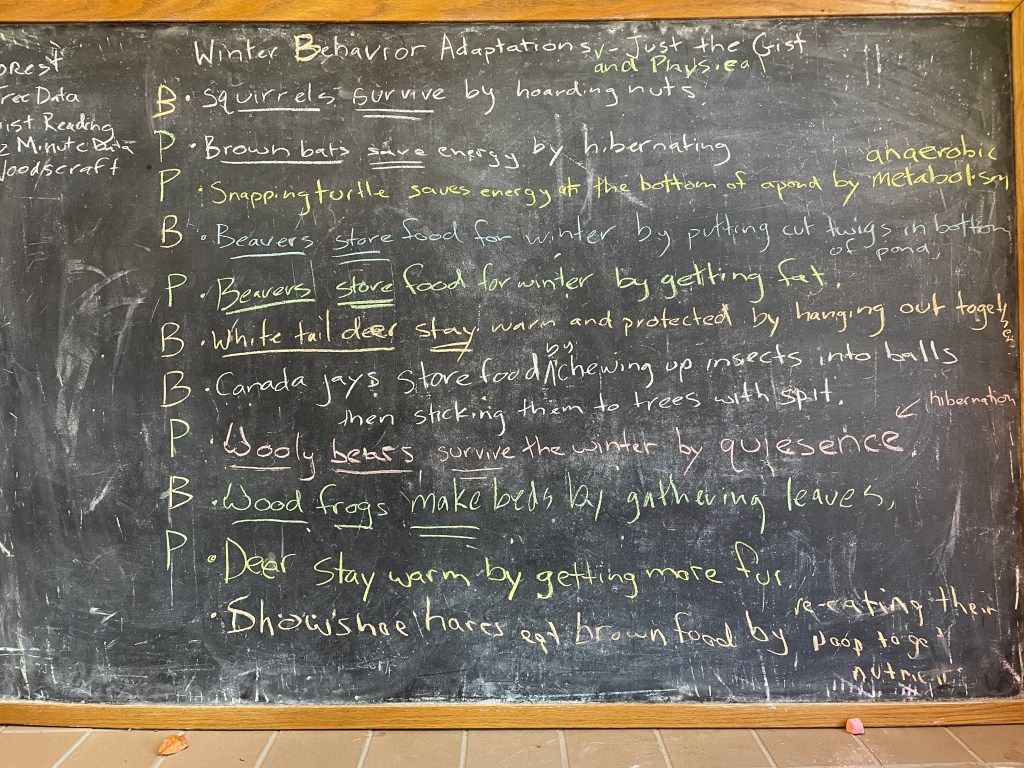 orest
Tree Data
ist Reading
2 Minute Data
Woodscraft
Winter Behavior Adaptations - Just the Gist
and Physical
B • Squirrels survive by hoarding nuts.
P • Brown bats save energy by hibernating
P • Snapping turtle saves energy at the bottom of a pond by anaerobic metabolism
B • Beavers store food for winter by putting cut twigs in bottom
of pond,
P • Beavers store food for winter by getting fat.
B • White tail deer stay warm and protected by hanging out together
B • Canada jays store food by chewing up insects into balls
then sticking them to trees with spit.
P • Wooly bears survive the winter by quiesence. ↙ hibernation
B • Wood frogs make beds by gathering leaves,
P • Deer stay warm by getting more fur.
• Showshoe hares eat brown food by re-eating their
poop to get